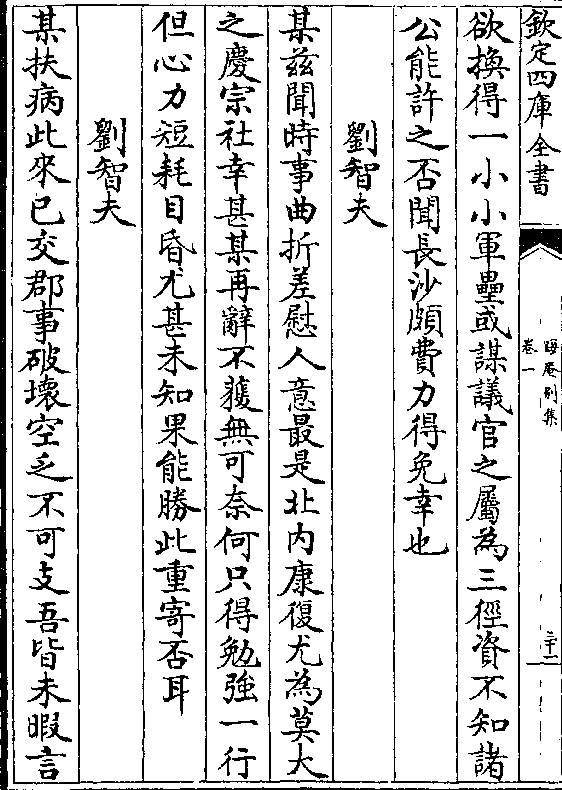 欽定四庫全書
晦庵別集
卷一
三十二
欲換得一小小軍壘或謀議官之屬為三徑資不知諸
公能許之否聞長沙頗費力得免幸也
劉智夫
某茲聞時事曲折差慰人意最是北内康復尤為莫大
之慶宗社幸甚某再辭不獲無可奈何只得勉強一行
但心力短耗目昏尤甚未知果能勝此重寄否耳
劉智夫
某扶病此來已交郡事破壞空乏不可支吾皆未暇言